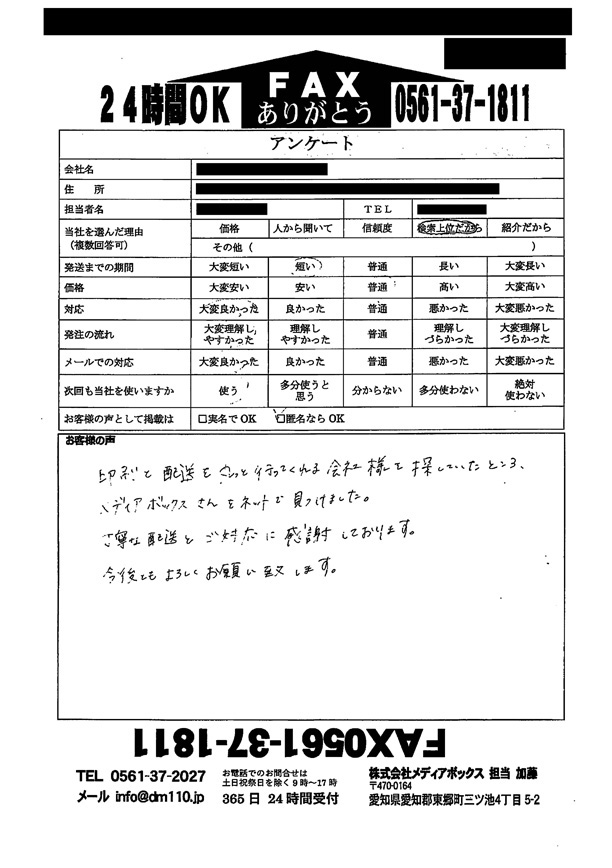 24時間OK FAX ありがとう 0561-37-1811
アンケート
会社名
住所
担当者名 TEL
当社を選んだ理由(複数回答可) 価格 人から聞いて 信頼度 検索上位だから 紹介だから
その他( )
発送までの期間 大変短い 短い 普通 長い 大変長い
価格 大変安い 安い 普通 高い 大変高い
対応 大変良かった 良かった 普通 悪かった 大変悪かった
発注の流れ 大変理解しやすかった 理解しやすかった 普通 理解しづらかった 大変理解しづらかった
メールでの対応 大変良かった 良かった 普通 悪かった 大変悪かった
次回も当社を使いますか 使う 多分使うと思う 分からない 多分使わない 絶対使わない
お客様の声として掲載は □実名でOK ☑匿名ならOK
お客様の声
印刷と配送をさっと行ってくれる会社様を探していたところ、
メディアボックスさんをネットで見つけました。
丁寧な配送とご対応に感謝しております。
今後ともよろしくお願い致します。
FAX0561-37-1811
TEL 0561-37-2027
メール info@dm110.jp
お電話でのお問合せは
土日祝祭日を除く9時~17時
365日 24時間受付
株式会社メディアボックス 担当 加藤
〒470-0164
愛知県愛知郡東郷町三ツ池4丁目5-2